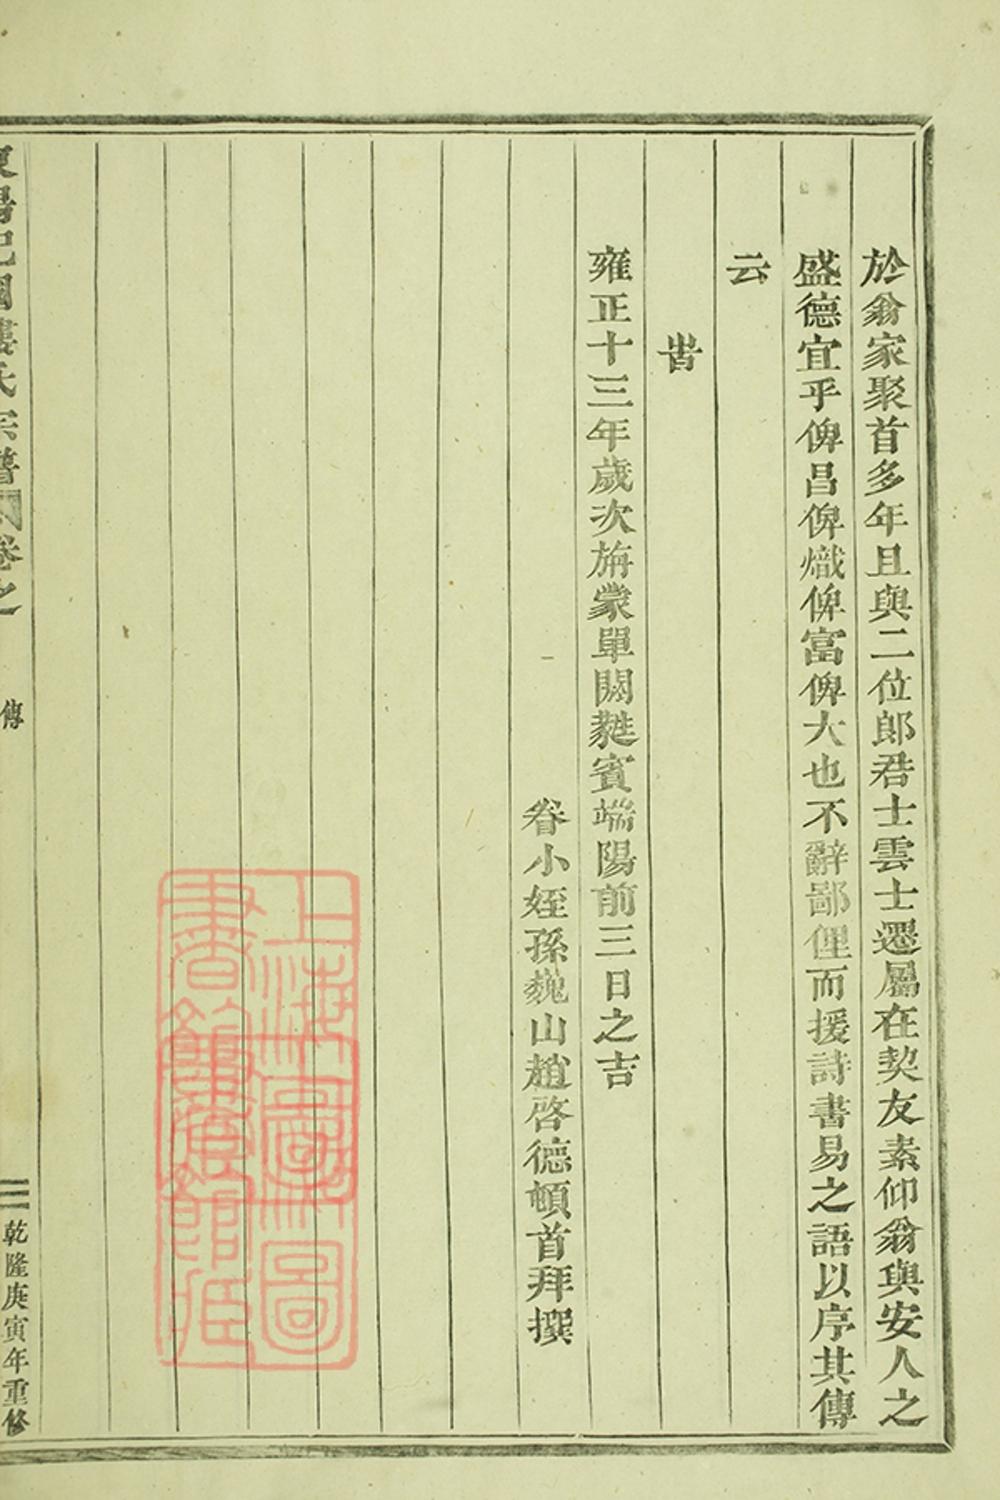 於翁家聚首多年且與二位郎君士雲士遷屬在契友素仰翁與安人之
盛德宜乎俾昌俾熾俾富俾大也不辭鄙俚而援詩書易之語以序其傳
云
旹
雍正十三年歲次旃蒙單閼蕤賓端陽前三日之吉
眷小姪孫巍山趙啓德頓首拜撰
東陽杞國樓氏宗譜 卷之 傳
乾隆庚寅年重修
上海圖書館藏